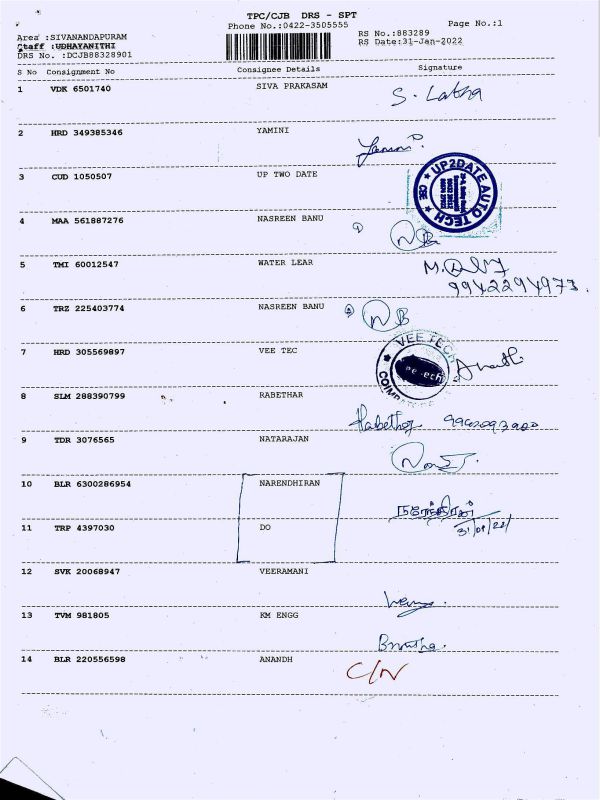 TPC/CJB DRS - SPT
Phone No.:0422-3505555
Page No.:1
Area :SIVANANDAPURAM
RS No.:883289
Staff :UDHAYANITHI
RS Date:31-Jan-2022
DRS No. :DCJB88328901
S No Consignment No Consignee Details Signature
1 VDK 6501740 SIVA PRAKASAM
S. Latha
2 HRD 349385346 YAMINI
3 CUD 1050507 UP TWO DATE
UP2DATE AUTO TECH CBE
4 MAA 561887276 NASREEN BANU
5 TMI 60012547 WATER LEAR
9942294973.
6 TRZ 225403774 NASREEN BANU
NB
7 HRD 305569897 VEE TEC
VEE TECH
8 SLM 288390799 RABETHAR
9 TDR 3076565 NATARAJAN
10 BLR 6300286954 NARENDHIRAN
11 TRP 4397030 DO
31/01/22
12 SVK 20068947 VEERAMANI
13 TVM 981805 KM ENGG
14 BLR 220556598 ANANDH
C/N